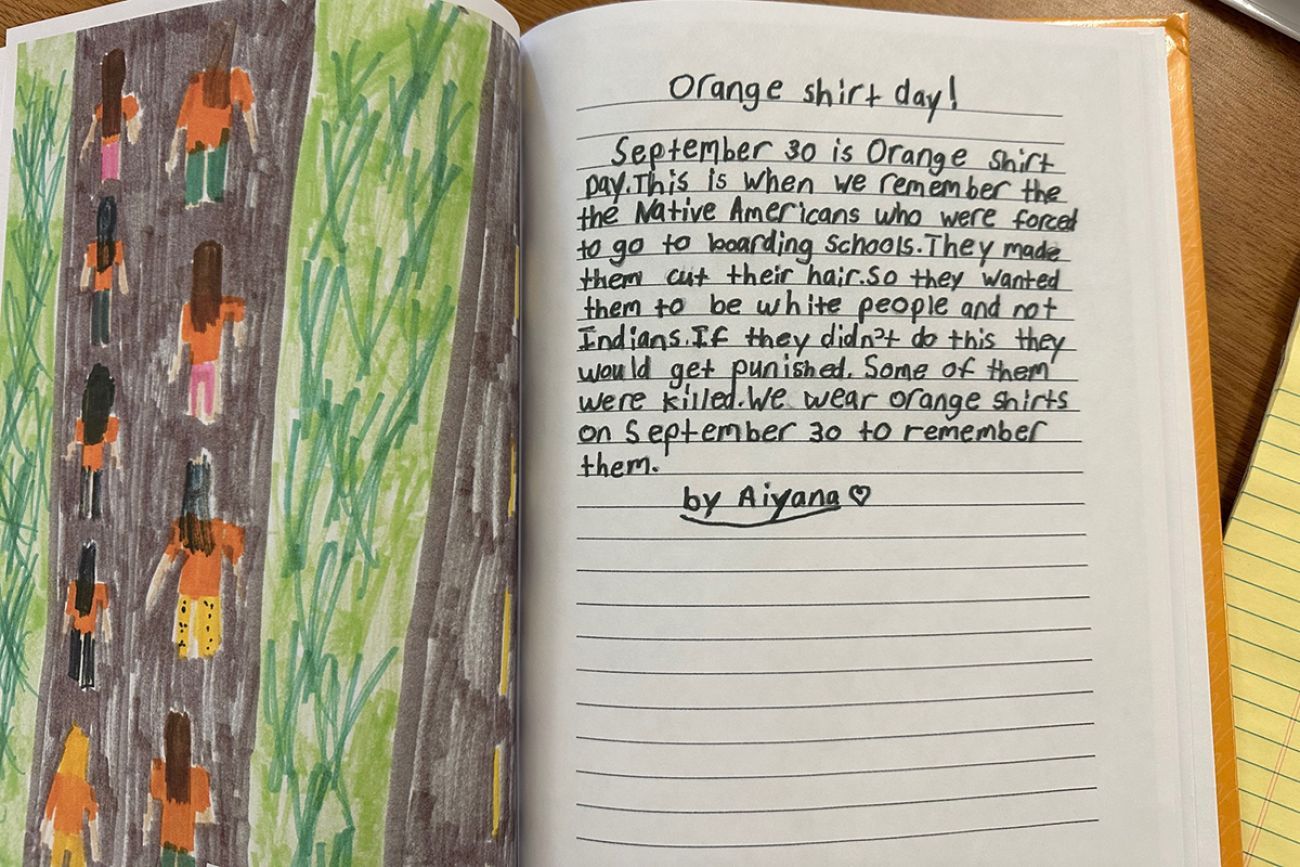 Orange shirt day!
September 30 is Orange shirt
Day. This is when we remember the
the Native Americans who were forced
to go to boarding schools. They made
them cut their hair. So they wanted
them to be white people and not
Indians. If they didn't do this they
would get punished. Some of them
were killed. We wear orange shirts
on September 30 to remember
them.
by Aiyana ♡